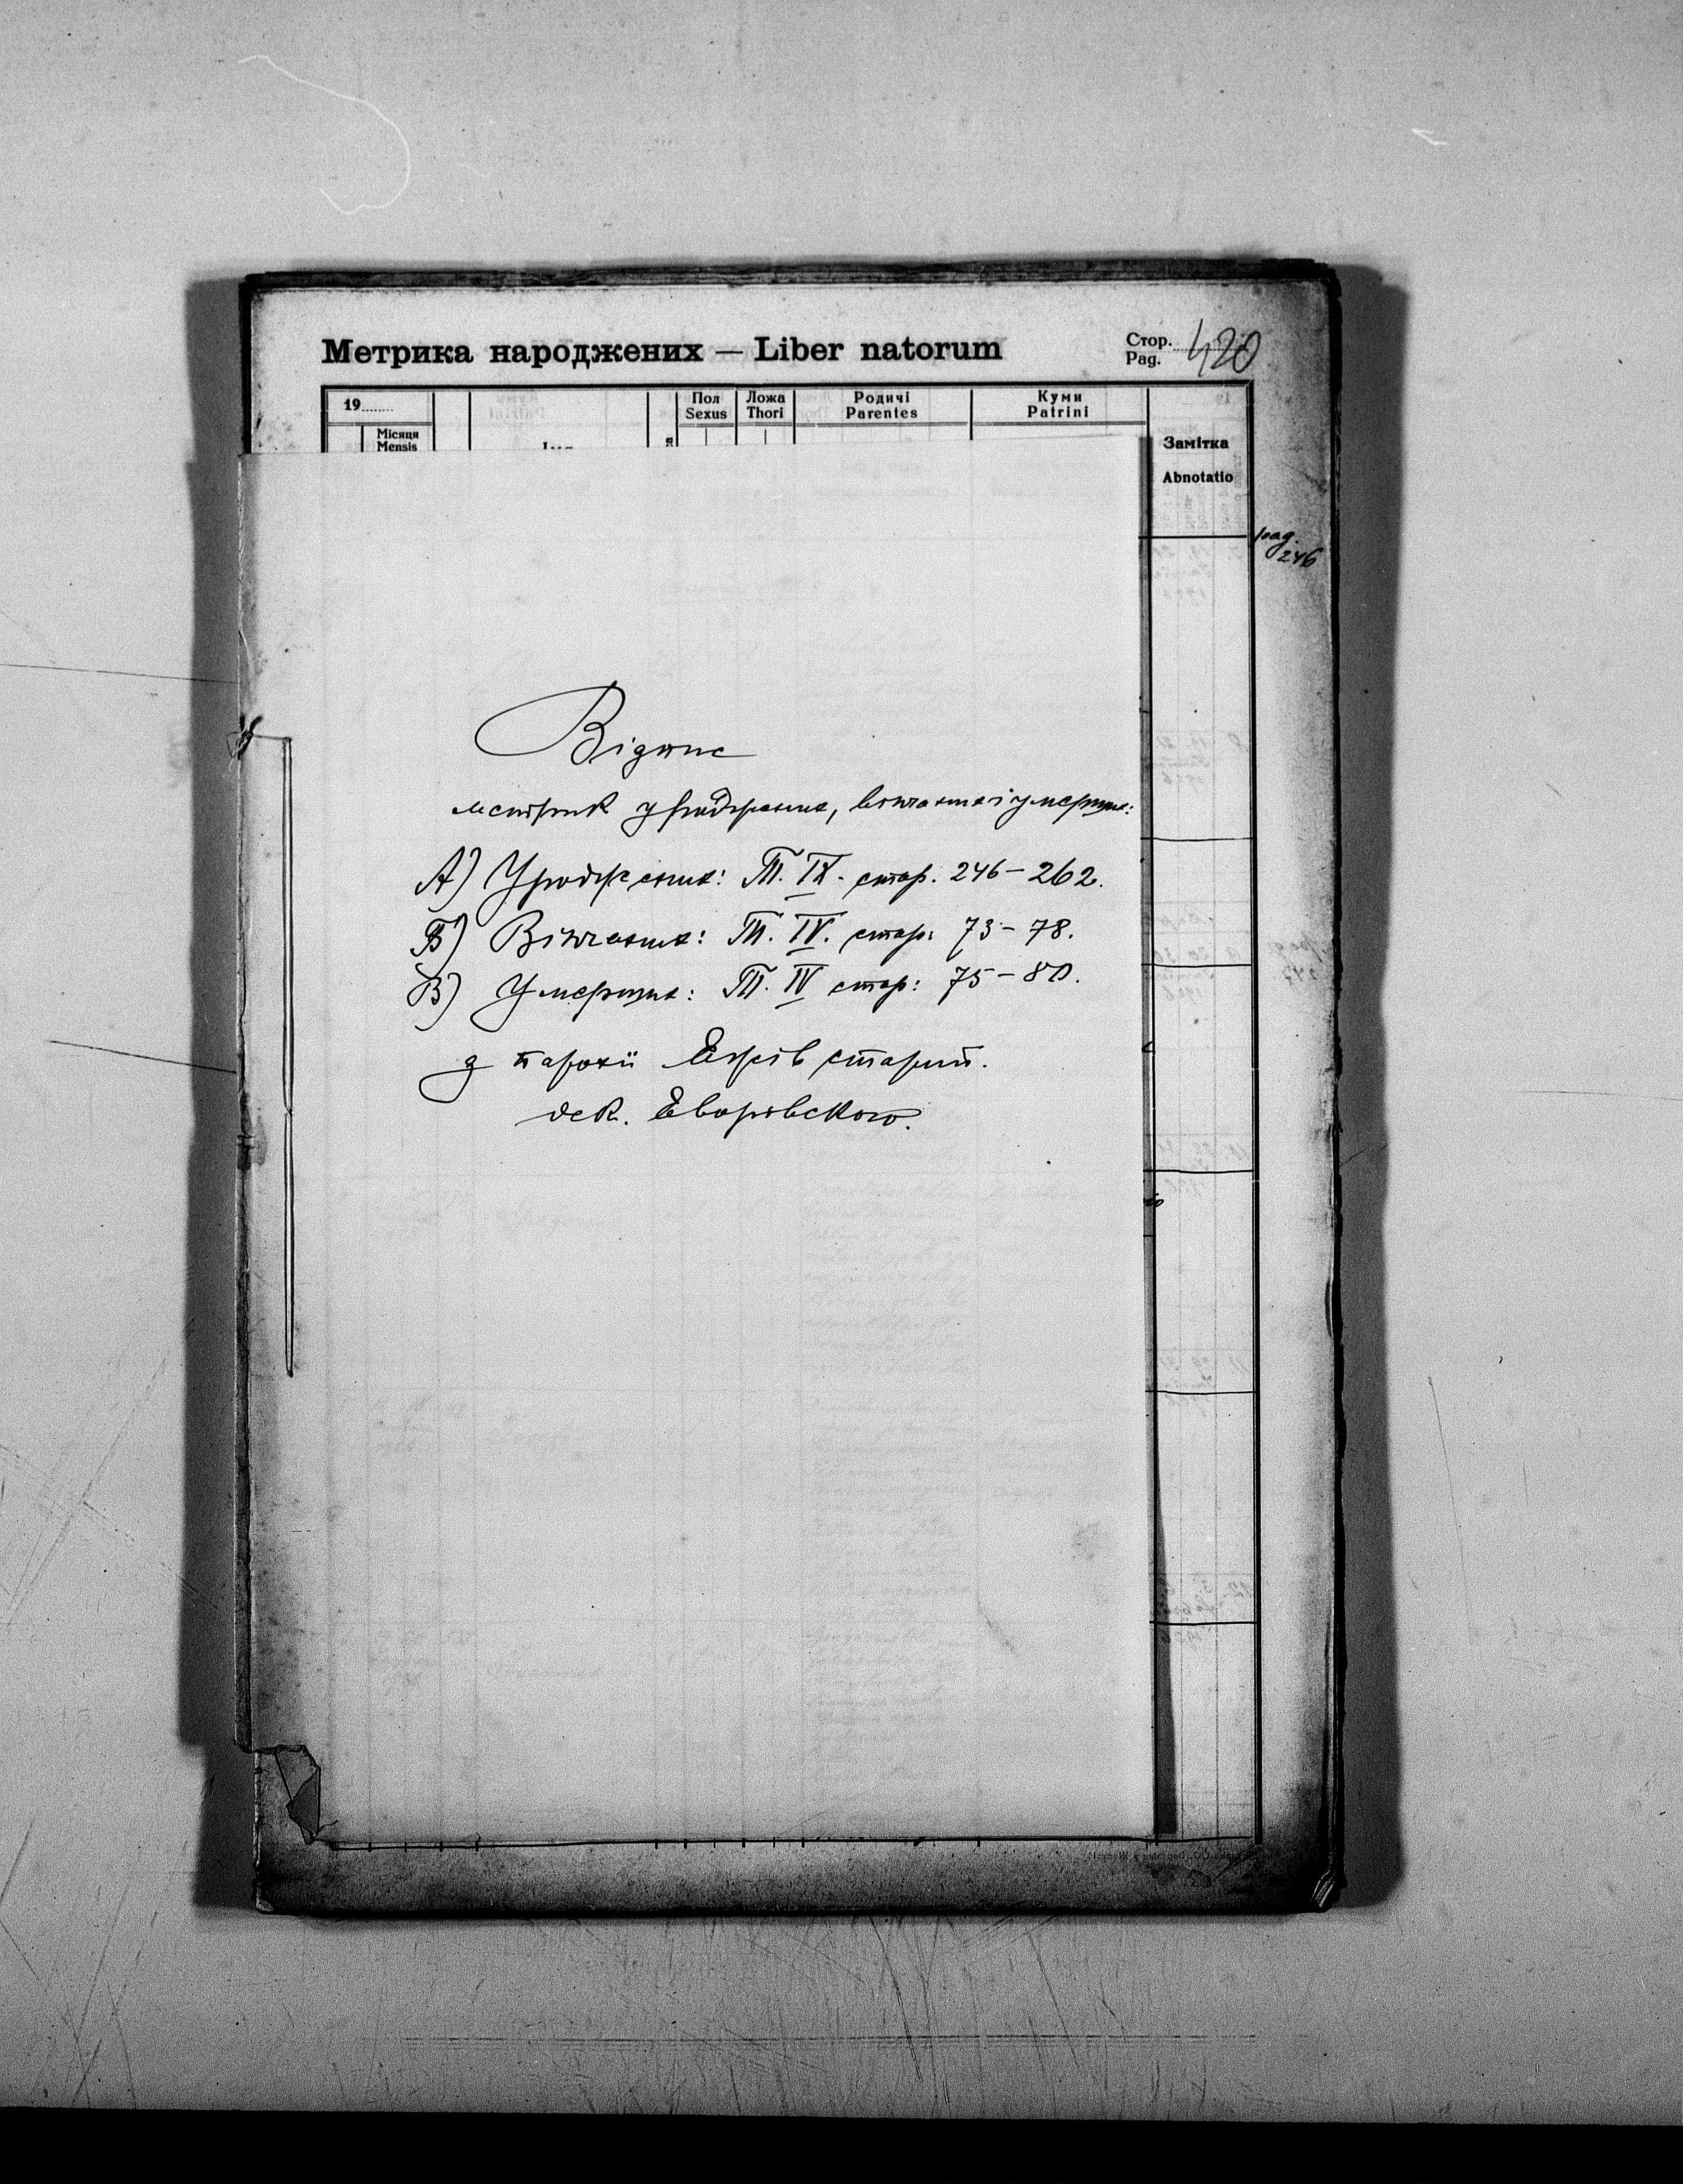 Метрика народжених — Liber natorum
Стор. 420
Pag.
19
Місяця
Mensis
Пол
Sexus
Ложа
Thori
Родичі
Parentes
Куми
Patrini
Замітка
Abnotatio
pag.
246
Відпис
метрик уроджених, вінчаних і умерших:
А) Уроджених: Т. IX. стор. 246 – 262.
Б) Вінчаних: Т. IV. стор: 73 – 78.
В) Умерших: Т. IV стор: 75 – 80.
з парохії старий.
дек. Яворівского.